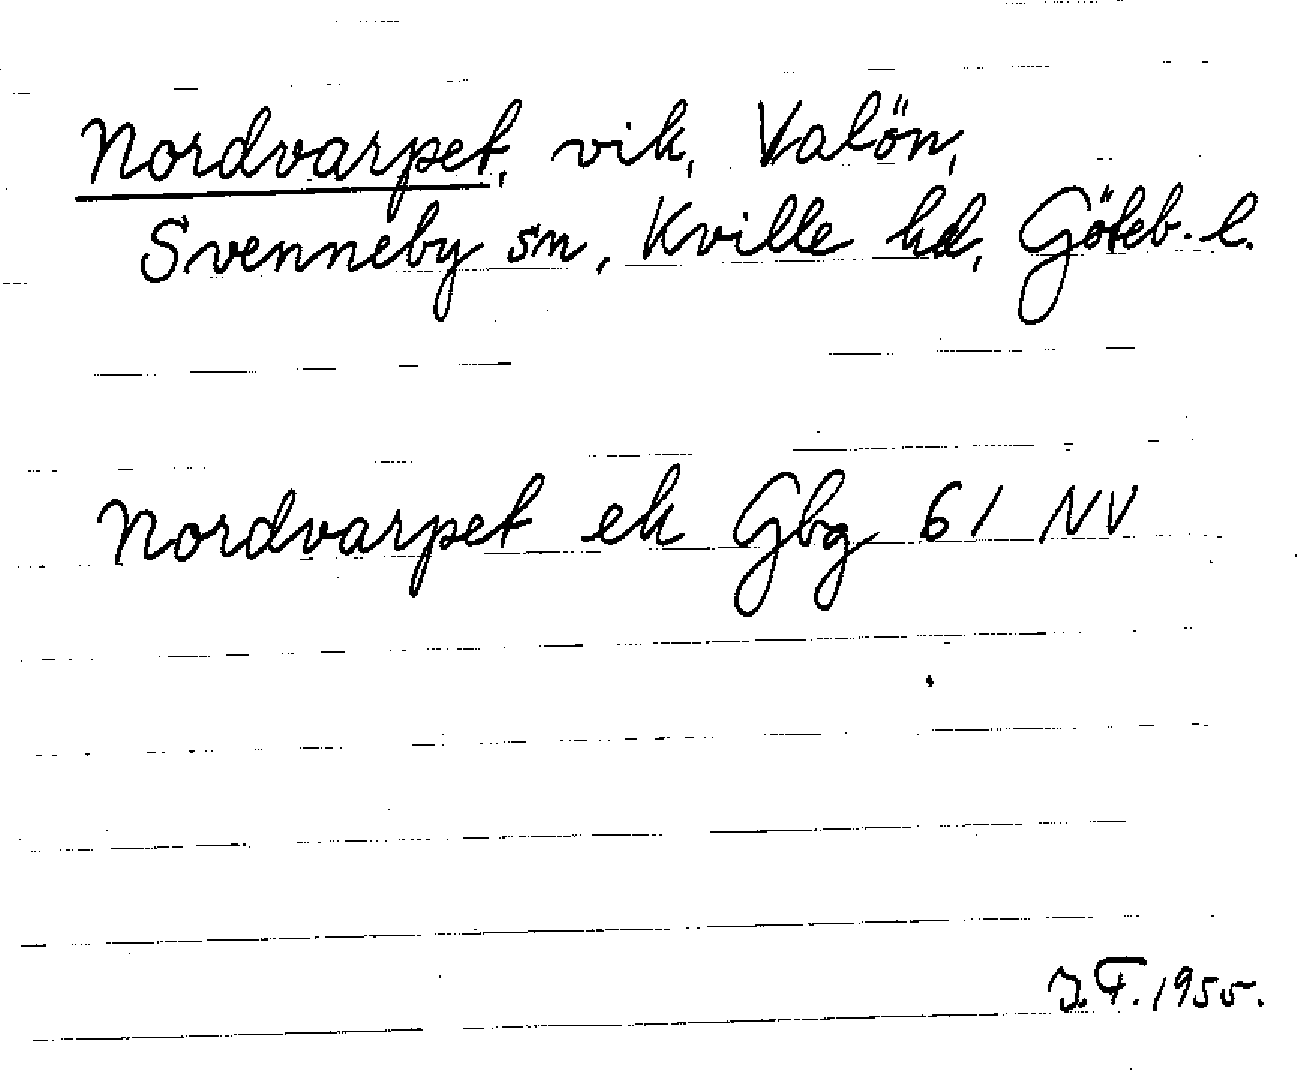 Nordvarpet, vik, Valön,
Svenneby sn, Kville hd, Göteb. l.
Nordvarpet ek Gbg 61 NV
J.F. 1955.